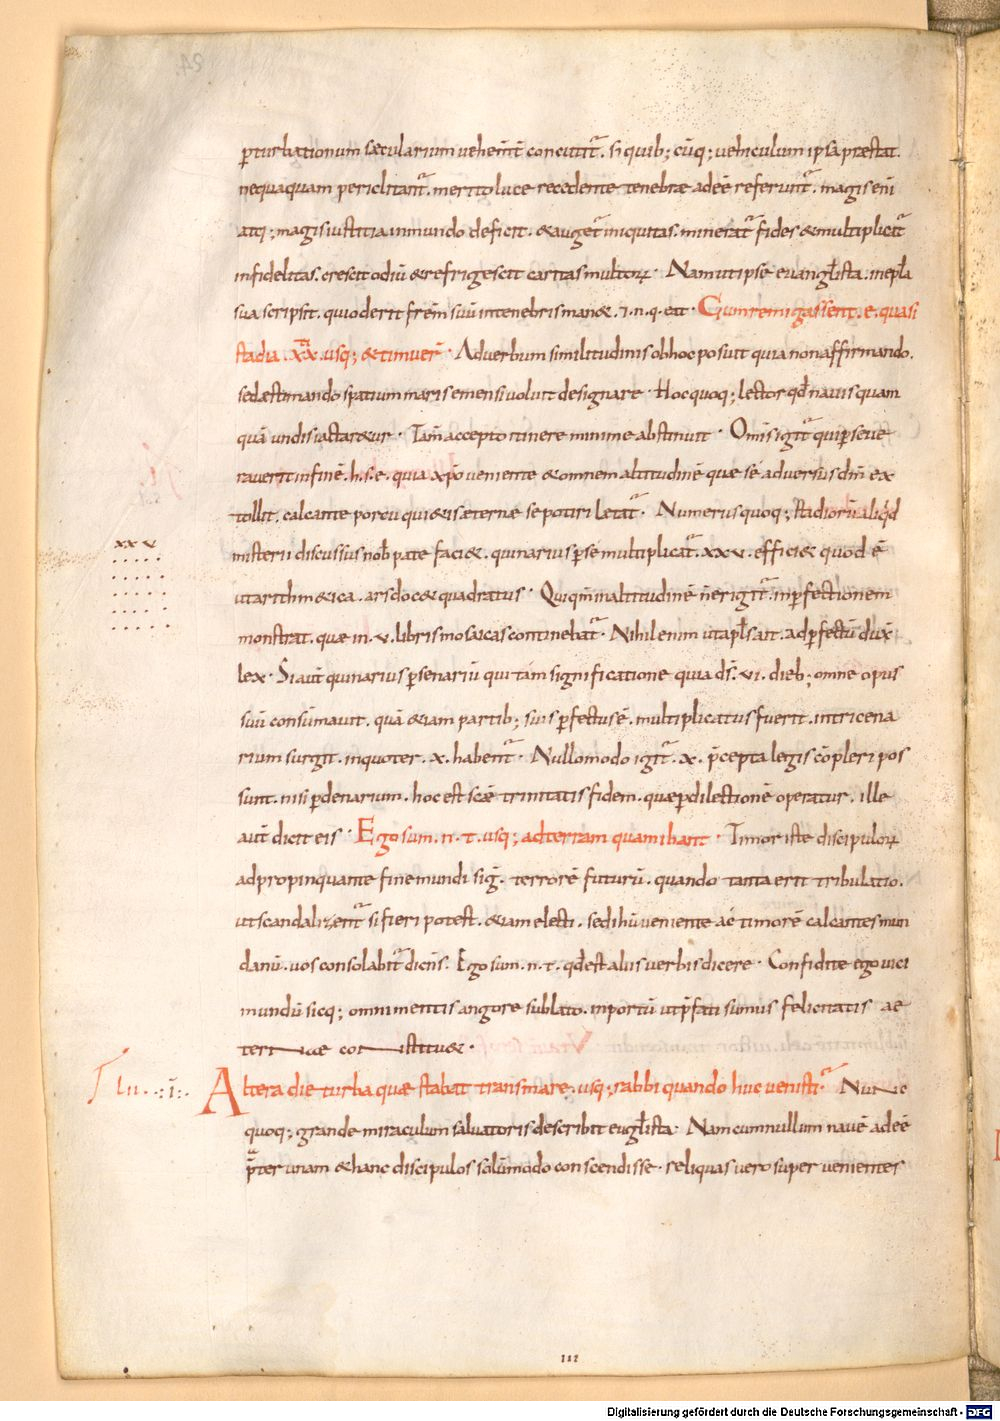 ꝑturbationum sæcularium uehem̄t concutit᷒. si quib; cūq; uehiculum ipsa præstat.
nequaquam periclitant᷒. merito luce recedente tenebrae adeē referunt᷒. magis eni
atq; magis iustitia in mundo deficit. & auget᷒ iniquitas. minerat᷒ fides & multiplicat᷒
infidelitas. crescit odiū & refrigescit caritas multoꝝ. Nam ut ipse euangl̄ista. in epl̄a
sua scripsit. qui oderit frēm suū in tenebris man&. ⁊.n.q.eat. Cum remigassent. e. quasi
stadia. xx. usq; & timuer̄. Aduerbum similitudinis ob hoc posuit quia non affirmando.
sed æstimando spatium maris emensi uoluit designare. Hoc quoq; lector qđ nauis quam
quā undis iactar&ur. Tam̄ accepto itinere minime abstinuit. Om̄s igit᷒ qui ꝑseue
rauerit in finē. h.s.e. quia xp̄o ueniente & omnem altitudinē quæ sé aduersus dm̄ ex
tollit. calcante portu qui&is æternæ se potiri letat᷒. Numerus quoq; stadiorū aliqđ
misterii discussus nob̄ patefaci&. quinarius ꝑ se multiplicat᷒. xxv. effici& quod ē
xxv
ut arithm&ica. ars doc& quadratus. Qui qm̄ in altitudinē n̄ erigit᷒. inꝑfectionem
monstrat. quæ in .v. libris mosaicas continebat᷒. Nihil enim ut apl̄s ait. ad ꝑfectū dux̄
lex. Si aut̄ quinarius ꝑ senariū qui tam̄ significatione quia ds̄. vi. dieb; omne opus
suū consūmauit. quā &iam partib; suis ꝑfectus ē. multiplicatus fuerit. in tricena
rium surgit. in quo ter. x. habent᷒. Nullomodo igit᷒. x. p̄cepta legis cōpleri pos
sunt. nisi ꝑ denarium. hoc est scǣ trinitatis fidem. quæ ꝑ dilectionē operatur. ille
aut̄ dicit eis. Ego sum. n. t. usq; ad terram quam ibant. Timor iste discipuloꝝ
adpropinquante fine mundi sig̅. terrorē futurū. quando tanta erit tribulatio.
ut scandalizent᷒ si fieri potest. &iam electi. sed ihū ueniente ac timorē calcantes mun
danū. uos consolabit᷒ dicns̄. Ego sum. n. t. qđ est aliis uerbis dicere. Confidite ego uici
mundū sicq; omni mentis angore sublato. in portū ut p̄fati sumus felicitatis ae
ternae constitu&.
Altera die turba quæ stabat trans mare. usq; rabbi quando huc uenisti. Nunc
quoq; grande miraculum saluatoris describit eugl̄ista. Nam cum nullum nauē adeē
p̄ter unam & hanc discipulos solūmodo conscendisse. reliquas uero superuenientes
III
Digitalisierung gefördert durch die Deutsche Forschungsgemeinschaft - DFG